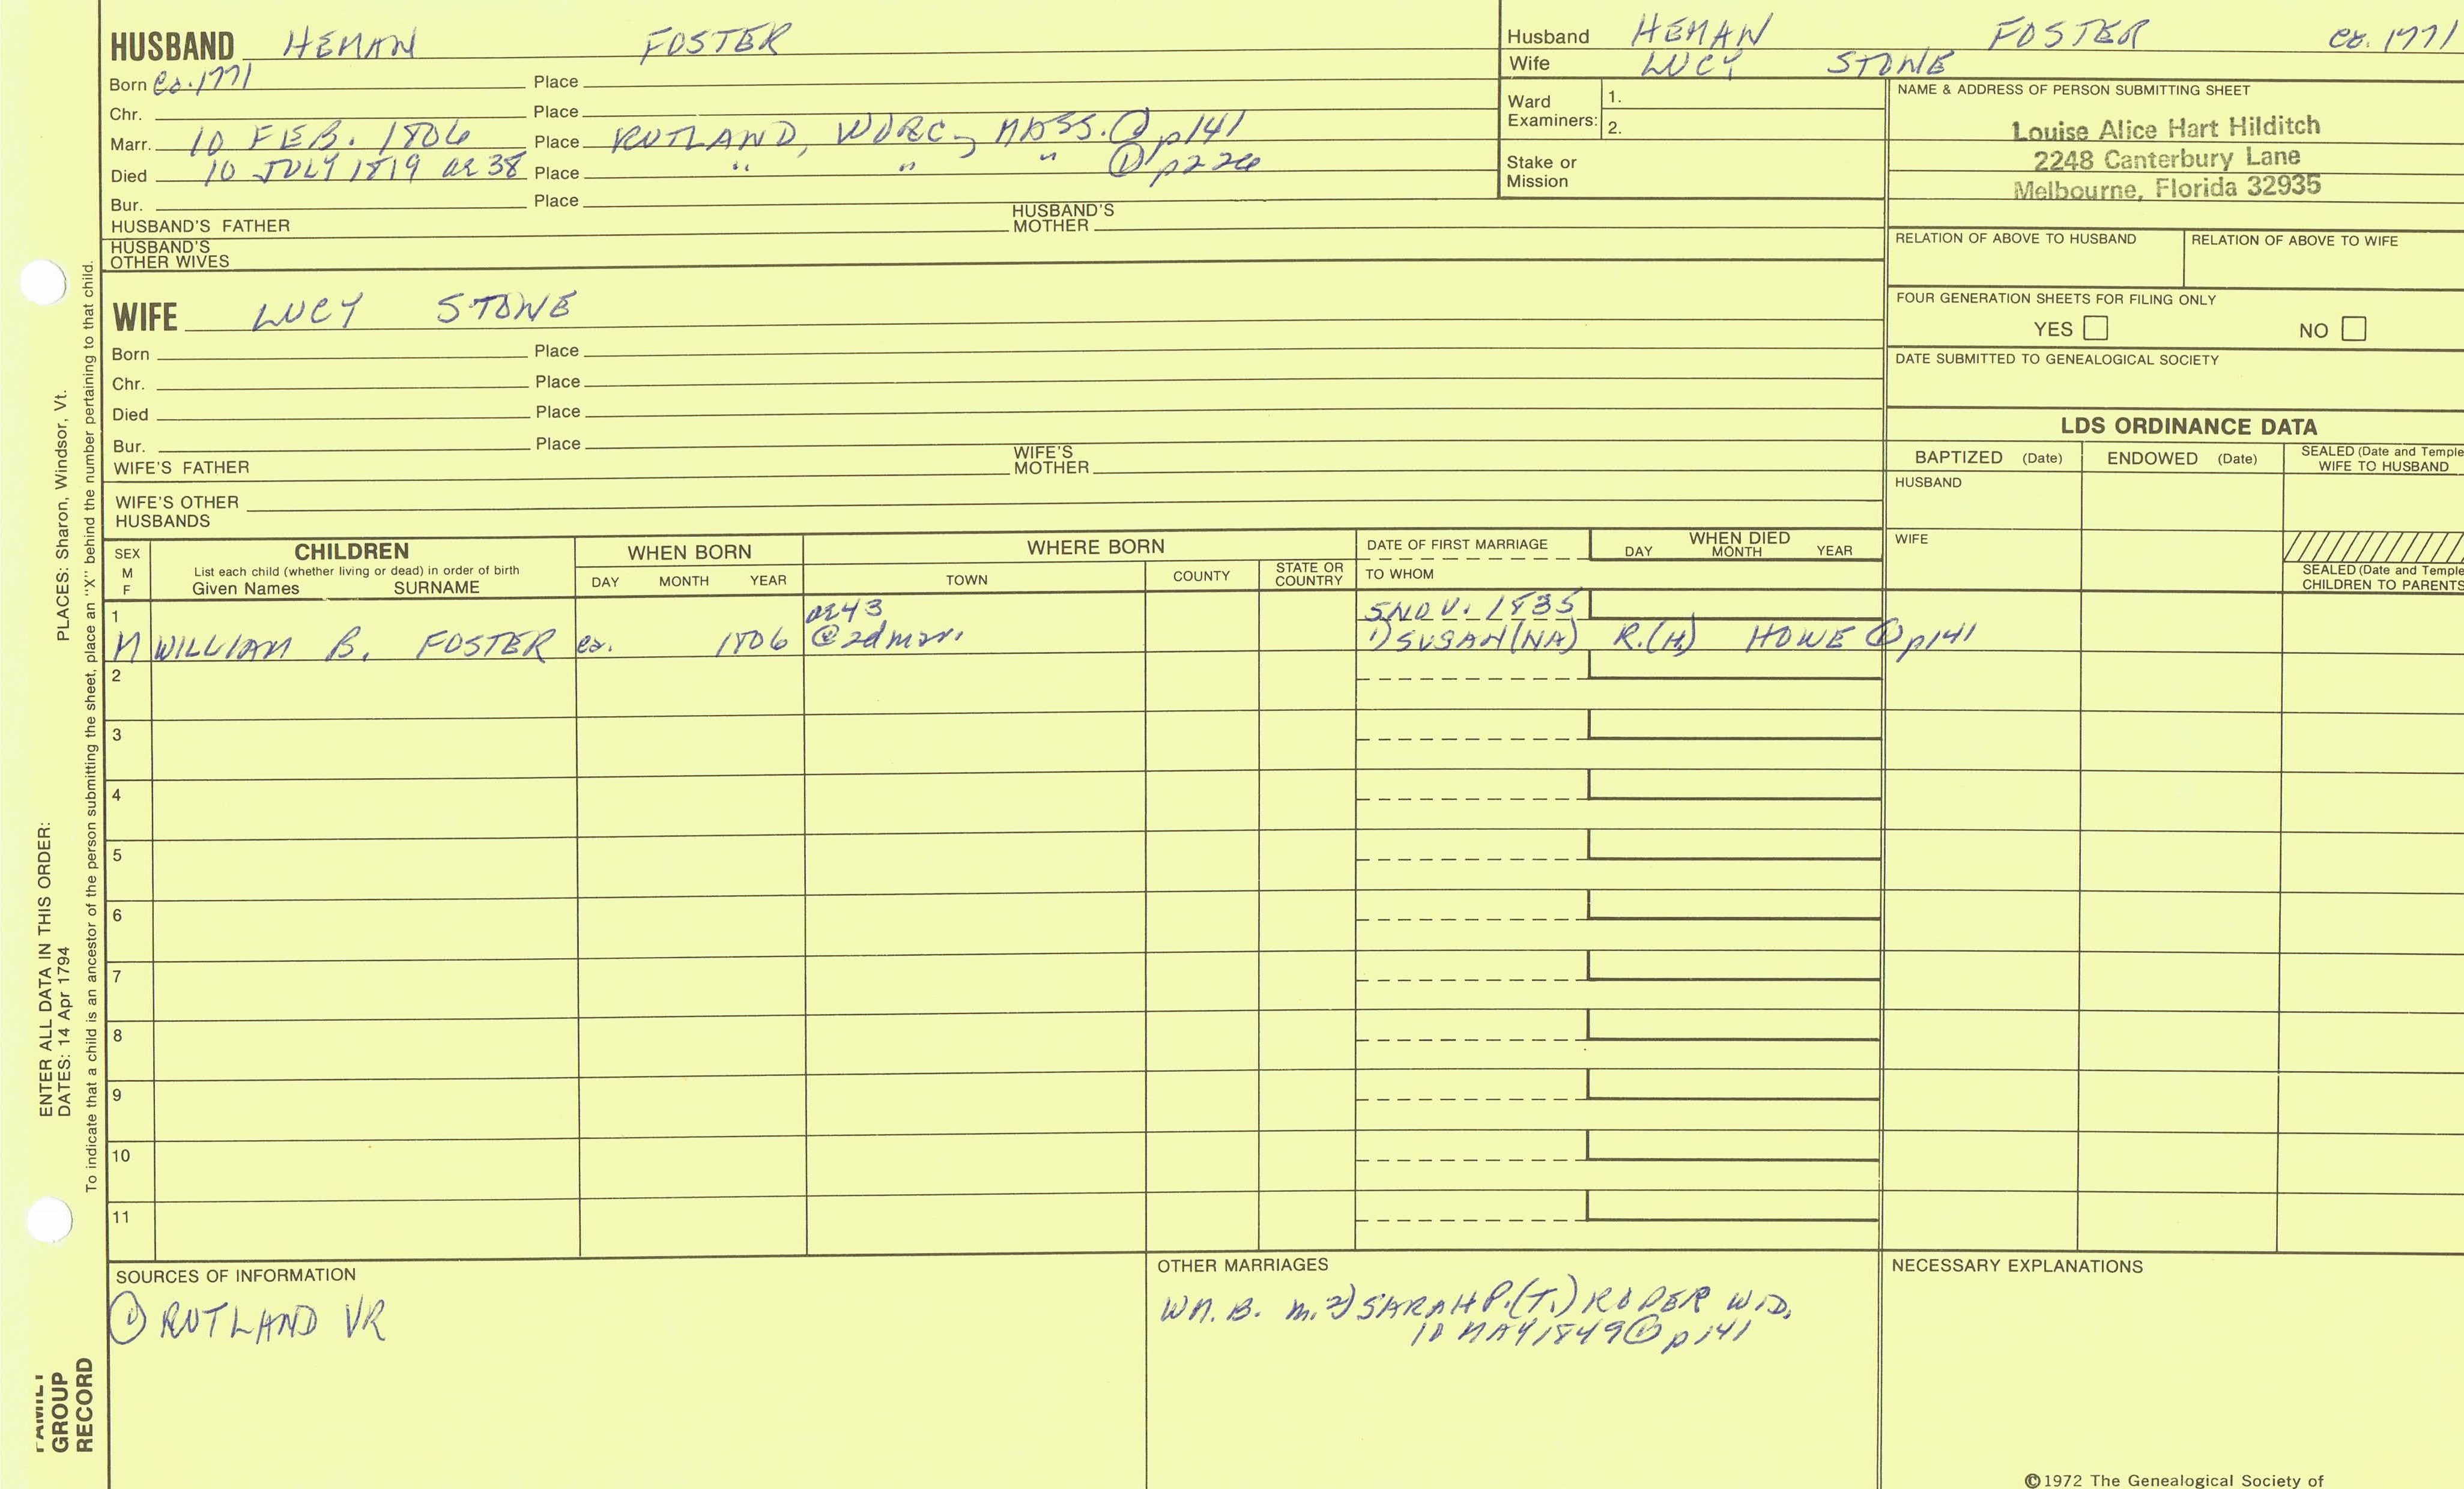 HUSBAND HEMAN FOSTER
Born ca. 1771 Place
Chr. Place
Marr. 10 FEB. 1806 Place RUTLAND, WORC., MASS. ① p141
Died 10 JULY 1819 ae 38 Place " " " ① p226
Bur. Place
HUSBAND'S FATHER HUSBAND'S MOTHER
HUSBAND'S OTHER WIVES
Husband HEMAN FOSTER ca. 1771
Wife LUCY STONE
Ward Examiners: 1.
2.
Stake or Mission
NAME & ADDRESS OF PERSON SUBMITTING SHEET
Louise Alice Hart Hilditch
2248 Canterbury Lane
Melbourne, Florida 32935
RELATION OF ABOVE TO HUSBAND RELATION OF ABOVE TO WIFE
FOUR GENERATION SHEETS FOR FILING ONLY
YES NO
DATE SUBMITTED TO GENEALOGICAL SOCIETY
WIFE LUCY STONE
Born Place
Chr. Place
Died Place
Bur. Place
WIFE'S FATHER WIFE'S MOTHER
WIFE'S OTHER HUSBANDS
LDS ORDINANCE DATA
BAPTIZED (Date) ENDOWED (Date) SEALED (Date and Temple
WIFE TO HUSBAND
HUSBAND
WIFE
SEALED (Date and Temple
CHILDREN TO PARENTS
SEX M F CHILDREN WHEN BORN WHERE BORN DATE OF FIRST MARRIAGE WHEN DIED
List each child (whether living or dead) in order of birth
Given Names SURNAME DAY MONTH YEAR TOWN COUNTY STATE OR COUNTRY TO WHOM DAY MONTH YEAR
1 ae 43 5 NOV. 1835
M WILLIAM B. FOSTER ca. 1806 @ 2d marr. 1) SUSAN(NA) R.(H.) HOWE ① p141
2
3
4
5
6
7
8
9
10
11
SOURCES OF INFORMATION
① RUTLAND VR
OTHER MARRIAGES
WM. B. m. 2) SARAH P. (T.) ROPER WID.
10 MAY 1849 ① p141
NECESSARY EXPLANATIONS
©1972 The Genealogical Society of
ENTER ALL DATA IN THIS ORDER: PLACES: Sharon, Windsor, Vt.
DATES: 14 Apr 1794
To indicate that a child is an ancestor of the person submitting the sheet, place an "X" behind the number pertaining to that child.
FAMILY
GROUP
RECORD